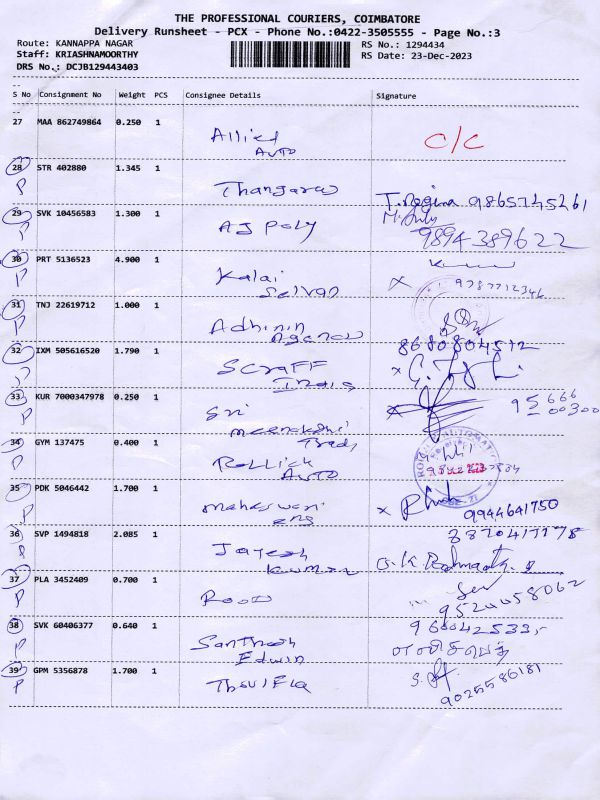 THE PROFESSIONAL COURIERS, COIMBATORE
Delivery Runsheet - PCX - Phone No.:0422-3505555 - Page No.:3
Route: KANNAPPA NAGAR
RS No.: 1294434
Staff: KRIASHNAMOORTHY
RS Date: 23-Dec-2023
DRS No.: DCJB129443403
S No Consignment No Weight PCS Consignee Details Signature
27 MAA 862749864 0.250 1
Allied
Auto
C/C
28 STR 402880 1.345 1
P
Thangaraj
T. Regina 9865745261
29 SVK 10456583 1.300 1
P
AJ Poly
9894389622
30 PRT 5136523 4.900 1
P
Kalai
Selvan
x 9787712346
31 TNJ 22619712 1.000 1
P
Adhinin
Agency
8680804512
32 IXM 505616520 1.790 1
P
Scraff
x
33 KUR 7000347978 0.250 1
P
Sri
Meenakshi
Trad
95666
00300
34 GYM 137475 0.400 1
P
Rollick
Auto
35 PDK 5046442 1.700 1
P
Maheswari
eng
x
9944641750
36 SVP 1494818 2.085 1
P
Jayesh
Kumar
37 PLA 3452409 0.700 1
P
ROOD
9524458062
38 SVK 60406377 0.640 1
P
Santhosh
Edwin
39 GPM 5356878 1.700 1
P
9025586181